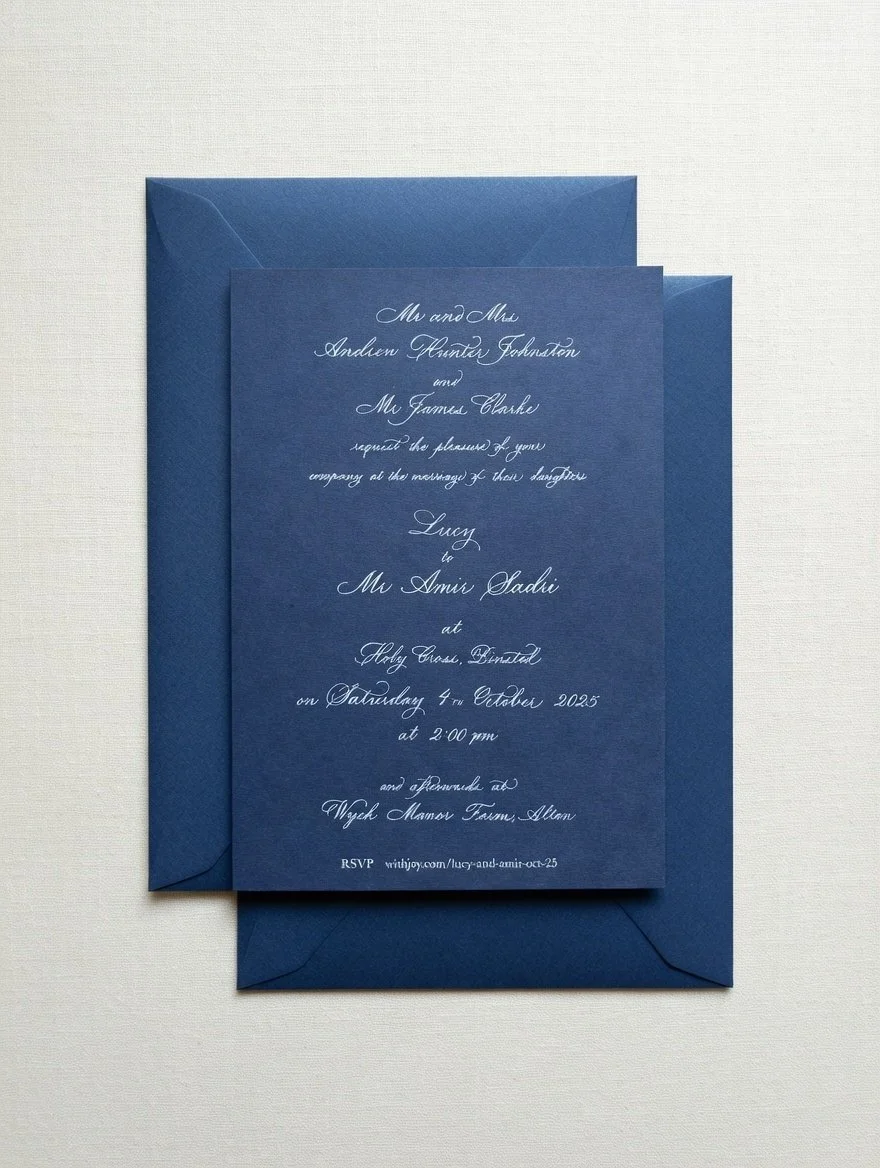 Mr and Mrs
Andrew Hunter Johnston
and
Mr James Clarke
request the pleasure of your
company at the marriage of their daughters
Lucy
to
Mr Amir Sadri
at
Holy Cross, Binsted
on Saturday 4TH October 2025
at 2:00 pm
and afterwards at
Wyck Manor Farm, Alton
RSVP withjoy.com/lucy-and-amir-oct-25